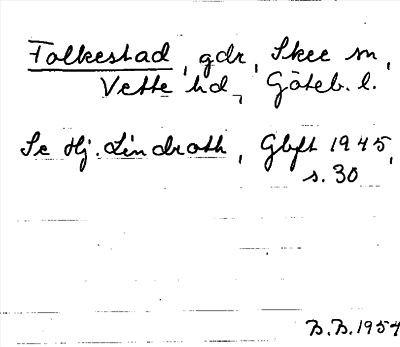 Folkestad, gdr, Skee sn,
Vette hd, Göteb. l.
Se Hj. Lindroth, Gbft 1945,
s. 30
B.B. 1954